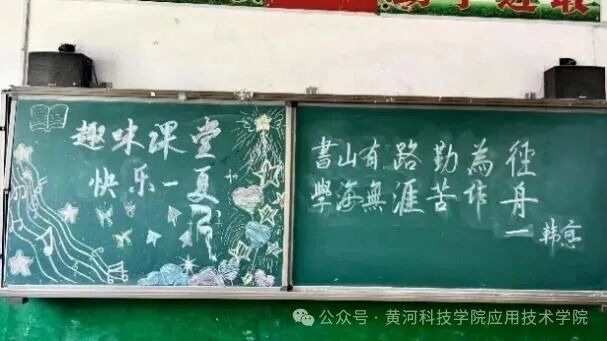 趣味课堂
快乐一夏
書山有路勤為徑
學海無涯苦作舟
一韩愈
公众号·黄河科技学院应用技术学院